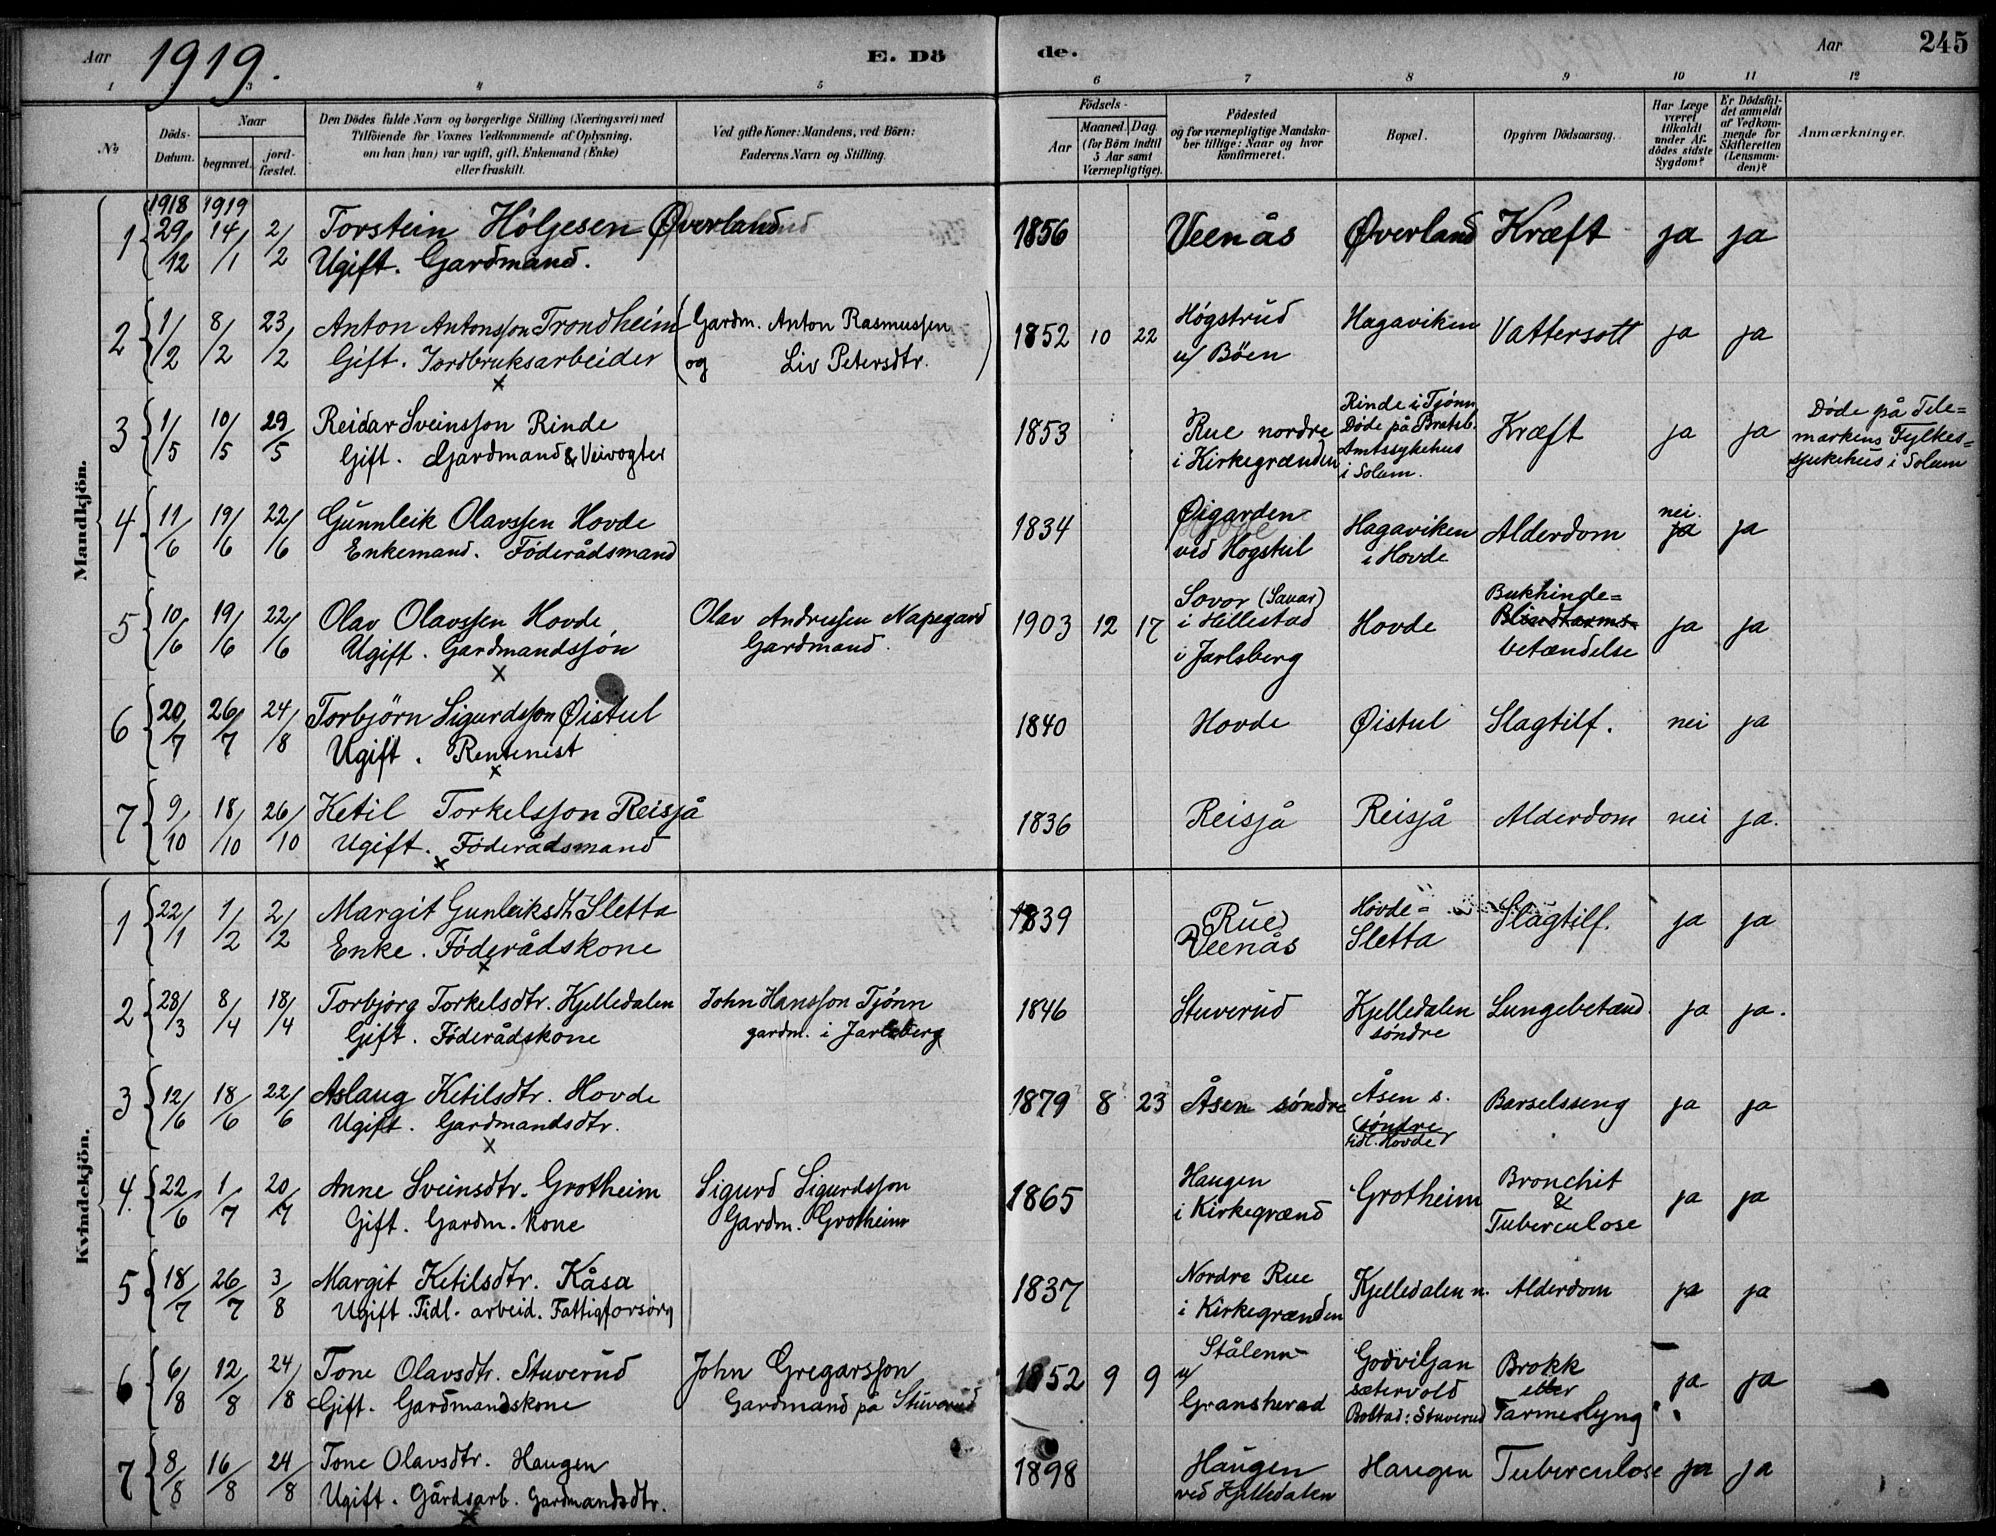 Aar 1919. E. Döde. Aar 245
1 3 4 5 6 7 8 9 10 11 12
No
Döds-Datum.
Naar
begravet.
jord-fæstet.
Den Dödes fulde Navn og borgerlige Stilling (Næringsvei) med
Tilföiende for Voxnes Vedkommende af Oplysning,
om han (hun) var ugift, gift, Enkemand (Enke)
eller fraskilt.
Ved gifte Koner: Mandens, ved Börn:
Faderens Navn og Stilling.
Födsels-
Aar
Maaned. Dag.
(for Börn indtil
5 Aar samt
Værnepligtige).
Födested
og for værnepligtige Mandska-
ber tillige: Naar og hvor
konfirmeret.
Bopæl.
Opgiven Dödsaarsag.
Har Læge
været
tilkaldt
under Af-
dödes sidste
Sygdom?
Er Dödsfal-
det anmeldt
af Vedkom-
mende for
Skifteretten
(Lensman-
den)?
Anmærkninger.
Mandkjön.
1918 1919
1 29/12 14/1 2/2 Torstein Hølgesen Øverland 1856 Veenås Øverland Kræft ja ja
Ugift. Gardmand.
2 1/2 8/2 23/2 Anton Antonsson Trondheim (Gardm. Anton Rasmussen 1852 10 22 Høgstrud Hagaviken Vattersott ja ja
Gift. Jordbruksarbeider (og Liv Petersdtr.) u/ Böen
x
3 1/5 10/5 29/5 Reidar Sveinsson Rinde 1853 Rue nordre Rinde i Tjønn Kræft ja ja Døde på Tele=
Gift. Gardmand & Veivogter i Kirkegrænden Døde på Bratsb. markens Fylkes=
Amtssykehus sjukehus i Solum
i Solum.
4 11/6 19/6 22/6 Gunnleik Olavssen Hovde 1834 Øigarden Hagaviken Alderdom nei. ja ja
Enkemand. Föderådsmand ved Høgstul i Hovde
5 10/6 19/6 22/6 Olav Olavssen Hovde Olav Andressen Napegard 1903 12 17 Sovor (Sauar) Hovde Bukhinde= ja ja
Ugift. Gardmandssøn Gardmand. i Hillestad Blindtarms-
x i Jarlsberg betændelse
6 20/7 26/7 24/8 Torbjörn Sigurdsson Øistul 1840 Hovde Øistul Slagtilf. nei ja
Ugift. Rentenist
x
7 9/10 18/10 26/10 Ketil Torkelsson Reisjå 1836 Reisjå Reisjå Alderdom nei ja.
Ugift. Föderådsmand
x
Kvindekjön.
1 22/1 1/2 2/2 Margit Gunleiksdtr Sletta 1839 (Rue) Hovde= Slagtilf. ja ja
Enke. Föderådskone Veenås Sletta
x
2 28/3 8/4 18/4 Torbjørg Torkelsdtr. Kjelledalen John Hansson Tjönn 1846 Stuverud Kjelledalen Lungebetænd. ja ja.
Gift. Föderådskone gardm. i Jarlsberg søndre
3 12/6 18/6 22/6 Aslaug Ketilsdtr. Hovde 1879? 8? 23? Åsen søndre Åsen s. Barselsseng ja ja
Ugift. Gardmandsdtr. (søndre
x tidl. Hovde
4. 22/6 1/7 20/7 Anne Sveinsdtr. Grotheim Sigurd Sigurdsson 1865 Haugen Grotheim Bronchit ja ja
Gift. Gardm. kone Gardm. Grotheim i Kirkegrænd &
Tuberculose
5 18/7 26/7 3/8 Margit Ketilsdtr. Kåsa 1837 Nordre Rue Kjelledalen n. Alderdom ja ja
Ugift. Tidl. arbeid. Fattigforsörg i Kirkegrænden
6 6/8 12/8 24/8 Tone Olavsdtr. Stuverud John Gregarsson 1852 9 9 Stålenn Godviljan Brokk ja ja
Gift. Gardmandskone Gardmand på Stuverud u/ sætervold eller
Gransherad Bosted: Stuverud Tarmeslyng
7 8/8 16/8 24/8 Tone Olavsdtr. Haugen 1898 Haugen Haugen Tuberculose ja ja
Ugift. Gårdsarb. Gardmandsdtr. ved Kjelledalen
x